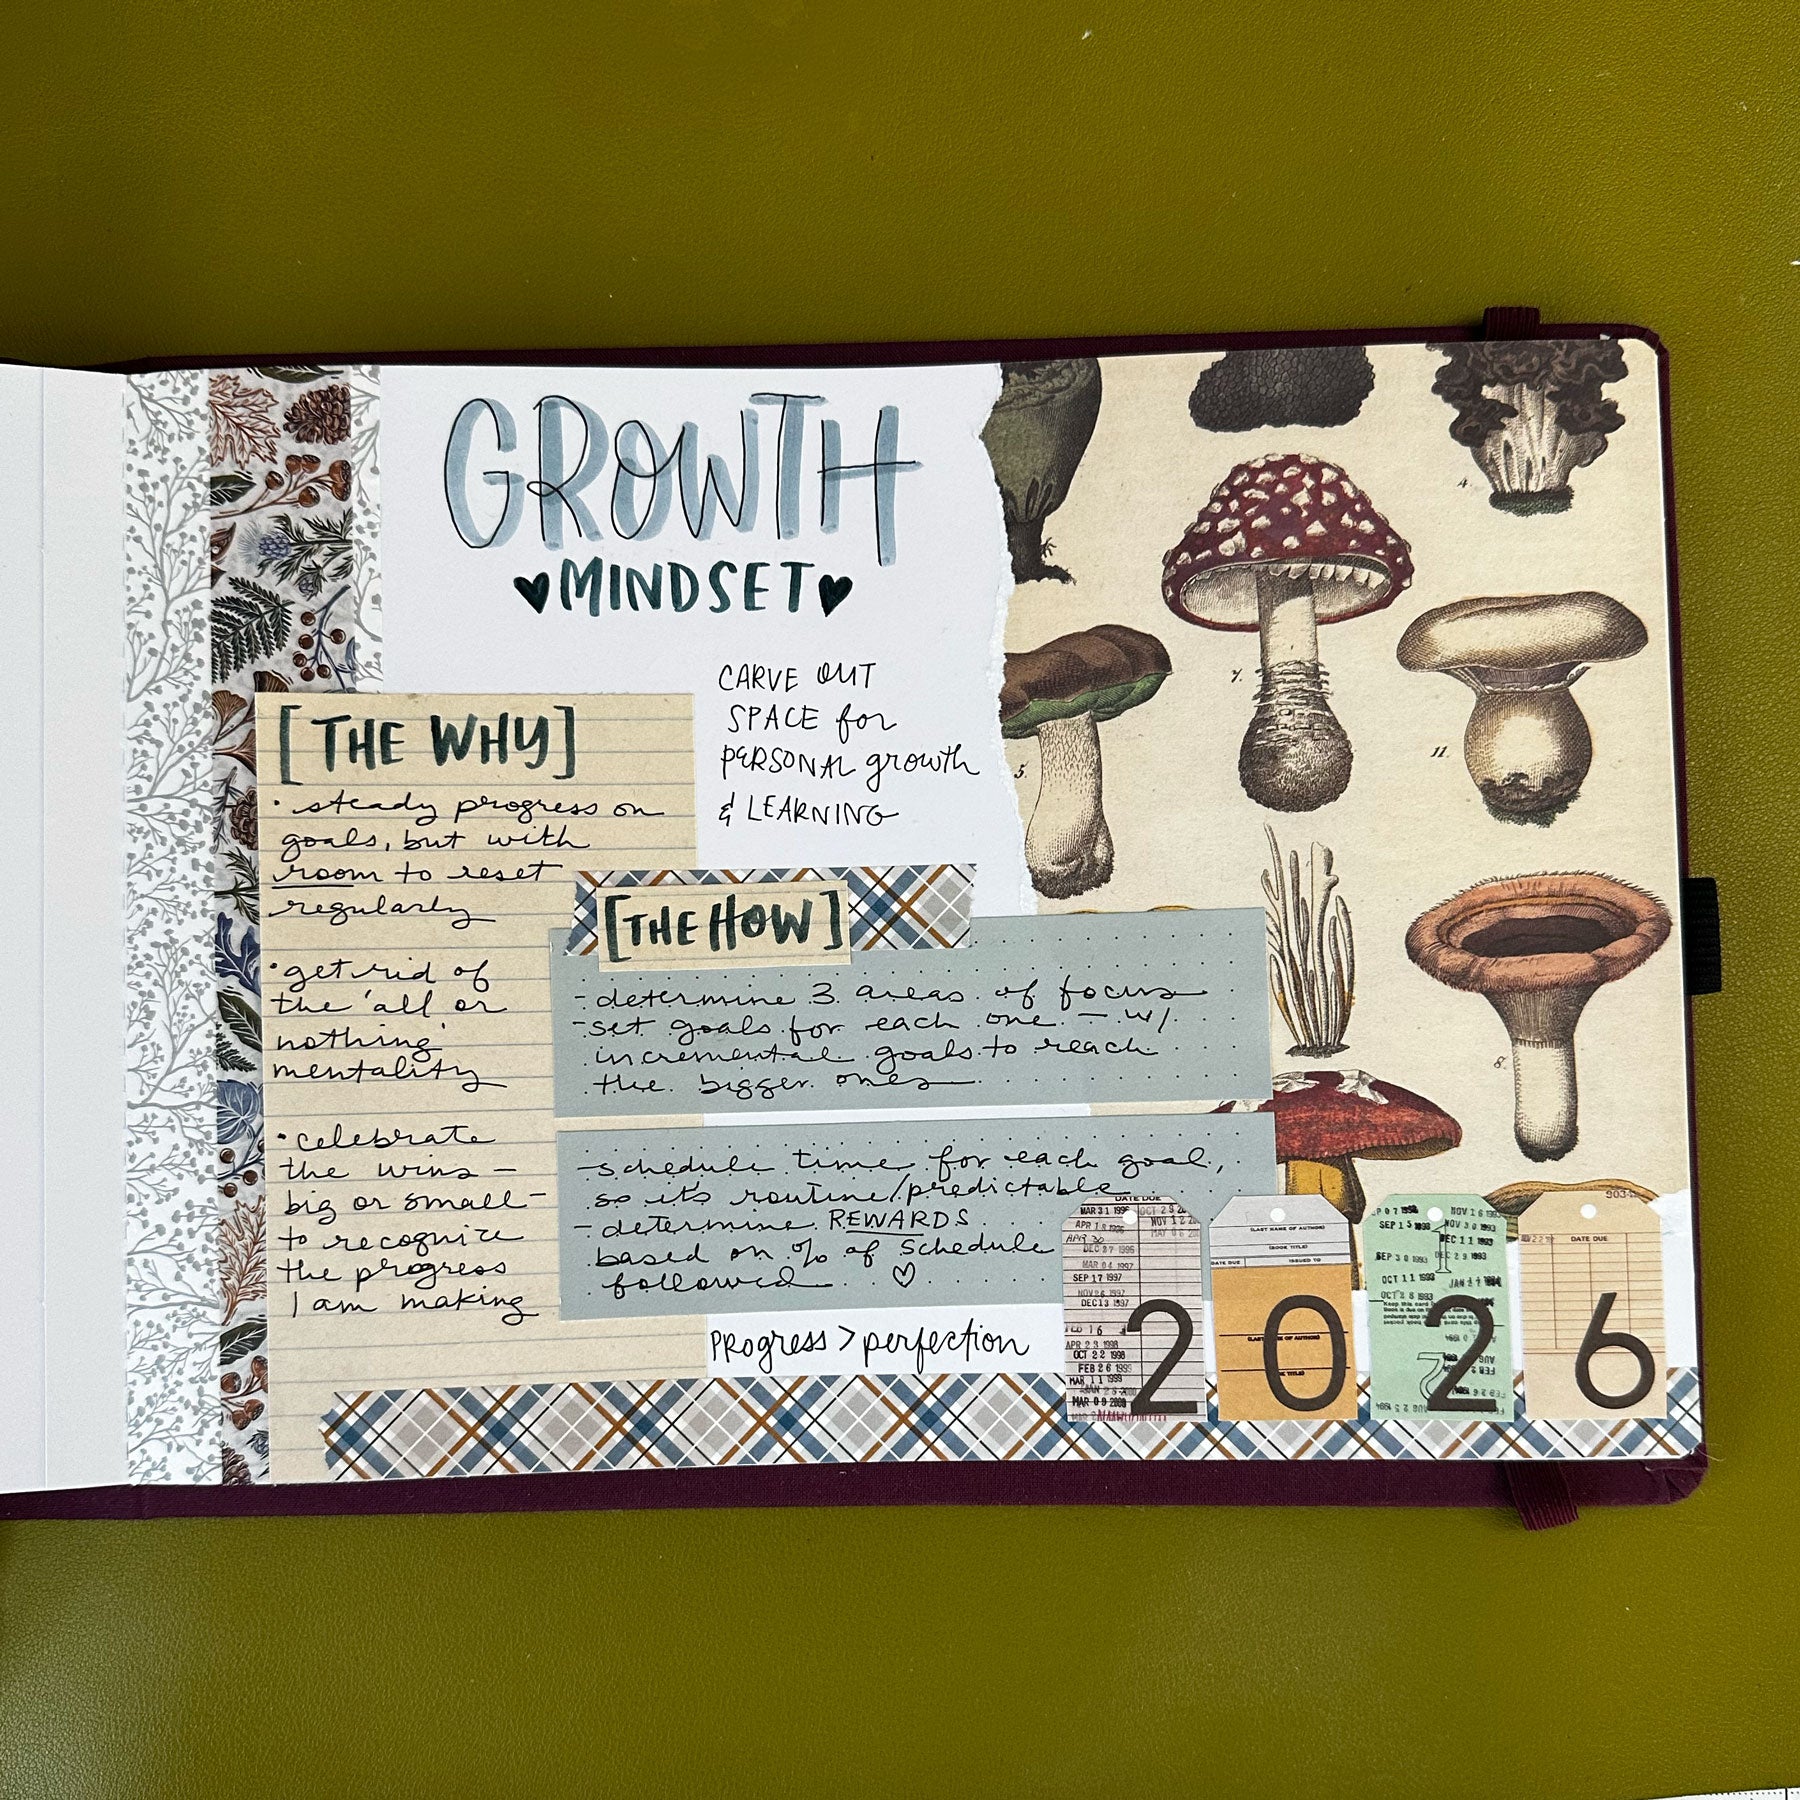 GROWTH
MINDSET
CARVE OUT
SPACE for
PERSONAL growth
& LEARNING
[THE WHY]
• steady progress on
goals, but with
room to reset
regularly
• get rid of
the 'all or
nothing'
mentality
• celebrate
the wins –
big or small –
to recognize
the progress
I am making
[THE HOW]
- determine 3 areas of focus
- set goals for each one – w/
incremental goals to reach
the bigger ones
- schedule time for each goal,
so it's routine/predictable
- determine REWARDS
based on % of schedule
followed ♡
PROGRESS > perfection
4.
7.
11.
5.
8.
DATE DUE
MAR 31 1996
OCT 29
NOV 12
APR 18 1996
APR 30
DEC 27 1996
MAR 04 1997
SEP 17 1997
NOV 26 1997
DEC 13 1997
APR 23 1998
OCT 22 1998
FEB 26 1999
MAR 11 1999
MAR 09 2000
2
(LAST NAME OF AUTHOR)
(BOOK TITLE)
DATE DUE ISSUED TO
(LAST NAME OF AUTHOR)
0
NOV 16 1993
SEP 15 1993
NOV 30 1993
DEC 11 1993
SEP 30 1993
DEC 29 1993
OCT 11 1993
OCT 26 1993
2
DATE DUE
6